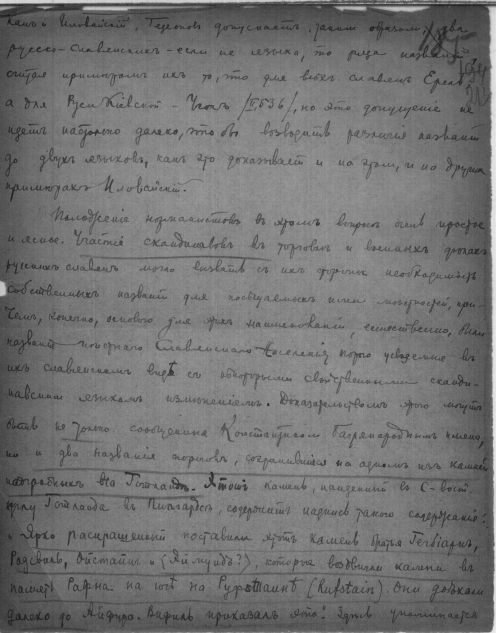 какъ и Иловайскій, Гедеоновъ допускаетъ, такимъ образомъ, два
русско-славянскихъ - если не языка, то ряда названій
считая примѣромъ ихъ то, что для всѣхъ славянъ
а для Руси Кіевской - /II, 536/, но это допущеніе не
идетъ настолько далеко, чтобы возводить различія названій
до двухъ языковъ, какъ это доказываетъ и на этомъ, и на другихъ
примѣрахъ Иловайскій.
Положеніе норманистовъ въ этомъ вопросѣ очень простое
и ясное. Участіе скандинавовъ въ торговыхъ и военныхъ дѣлахъ
русскихъ славянъ могло вызвать съ ихъ стороны необходимость
собственныхъ названій для посѣщаемыхъ ими мѣстностей, при-
чемъ, конечно, основою для этихъ наименованій, естественно, были
названія мѣстнаго славянскаго населенія, усвоенныя въ
ихъ славянскомъ видѣ съ нѣкоторыми свойственными сканди-
навскимъ языкамъ измѣненіемъ. Доказательствомъ этого могутъ
быть не только сообщенныя Константиномъ Багрянороднымъ имена,
но и два названія пороговъ, сохранившіяся на одномъ изъ камней
надгробныхъ на Готландѣ. Этотъ камень, найденный въ С-вост
углу Готланда въ Пильгардсъ, содержитъ надпись такого содержанія:
„Ярко раскрашенный поставили этотъ камень братья
Родвиль, Ойстайнъ и (Аймундъ?), которые воздвигли камни въ
память Рафна на югѣ на Руфстайнѣ (Rufstain). Они доѣхали
далеко до Айфура. Вифиль приказалъ это". Здѣсь упоминается